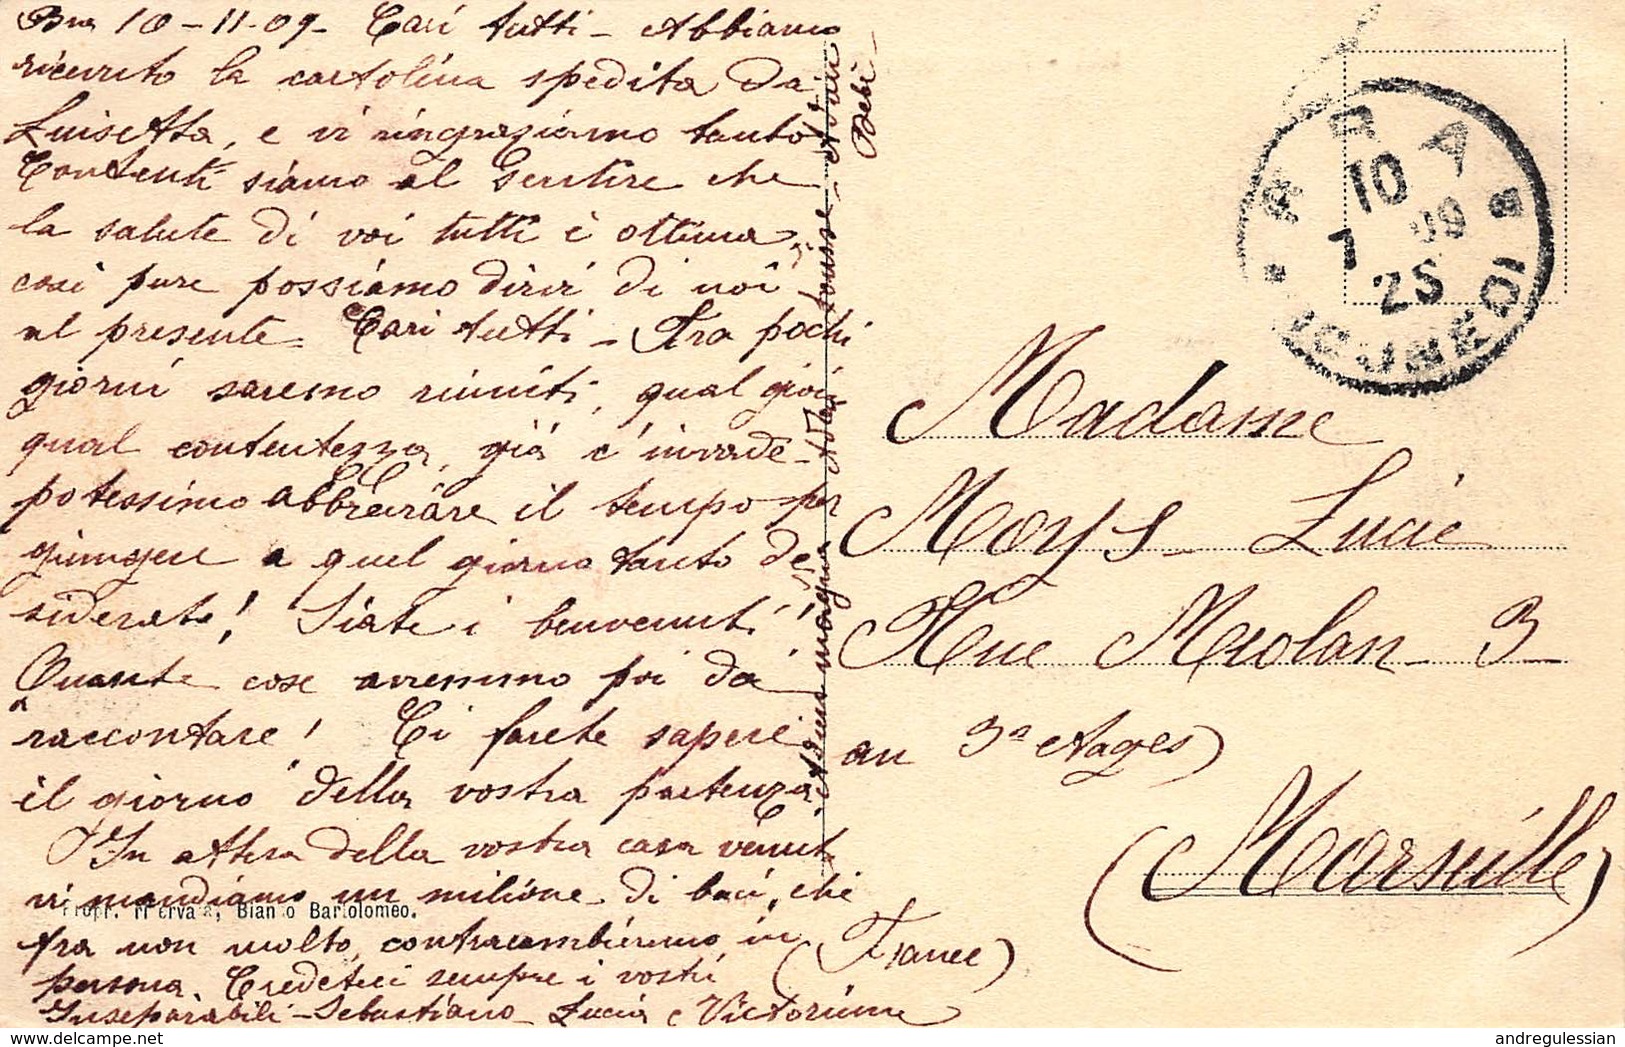 Bra 10-11-09- Cari tutti - Abbiamo
ricevuto la cartolina spedita da
Luisetta, e vi ringraziamo tanto
Contenti siamo al sentire che
la salute di voi tutti è ottima,
così pure possiamo dirvi di noi
al presente. Cari tutti - Fra pochi
giorni saremo riuniti, qual gioi
qual contentezza, già c'invade-
potessimo abbreviare il tempo per
giungere a quel giorno tanto de
siderato! Siate i benvenuti!
Quante cose avremmo poi da
raccontare! Ci farete sapere
il giorno della vostra partenza.
In attesa della vostra casa venut
vi mandiamo un milione di baci, che
fra non molto, contracambieremo, in
persona. Credeteci sempre i vostri
Inseparabili - Sebastiano Lucia e Victorine
Propr. riservata, Bianco Bartolomeo.
Bebi
BRA
10
7 09
25
(CUNEO)
Madame
Moys Lucie
Rue Meolan 3
au 3e etages
(Marseille)
(France)
andregulessian